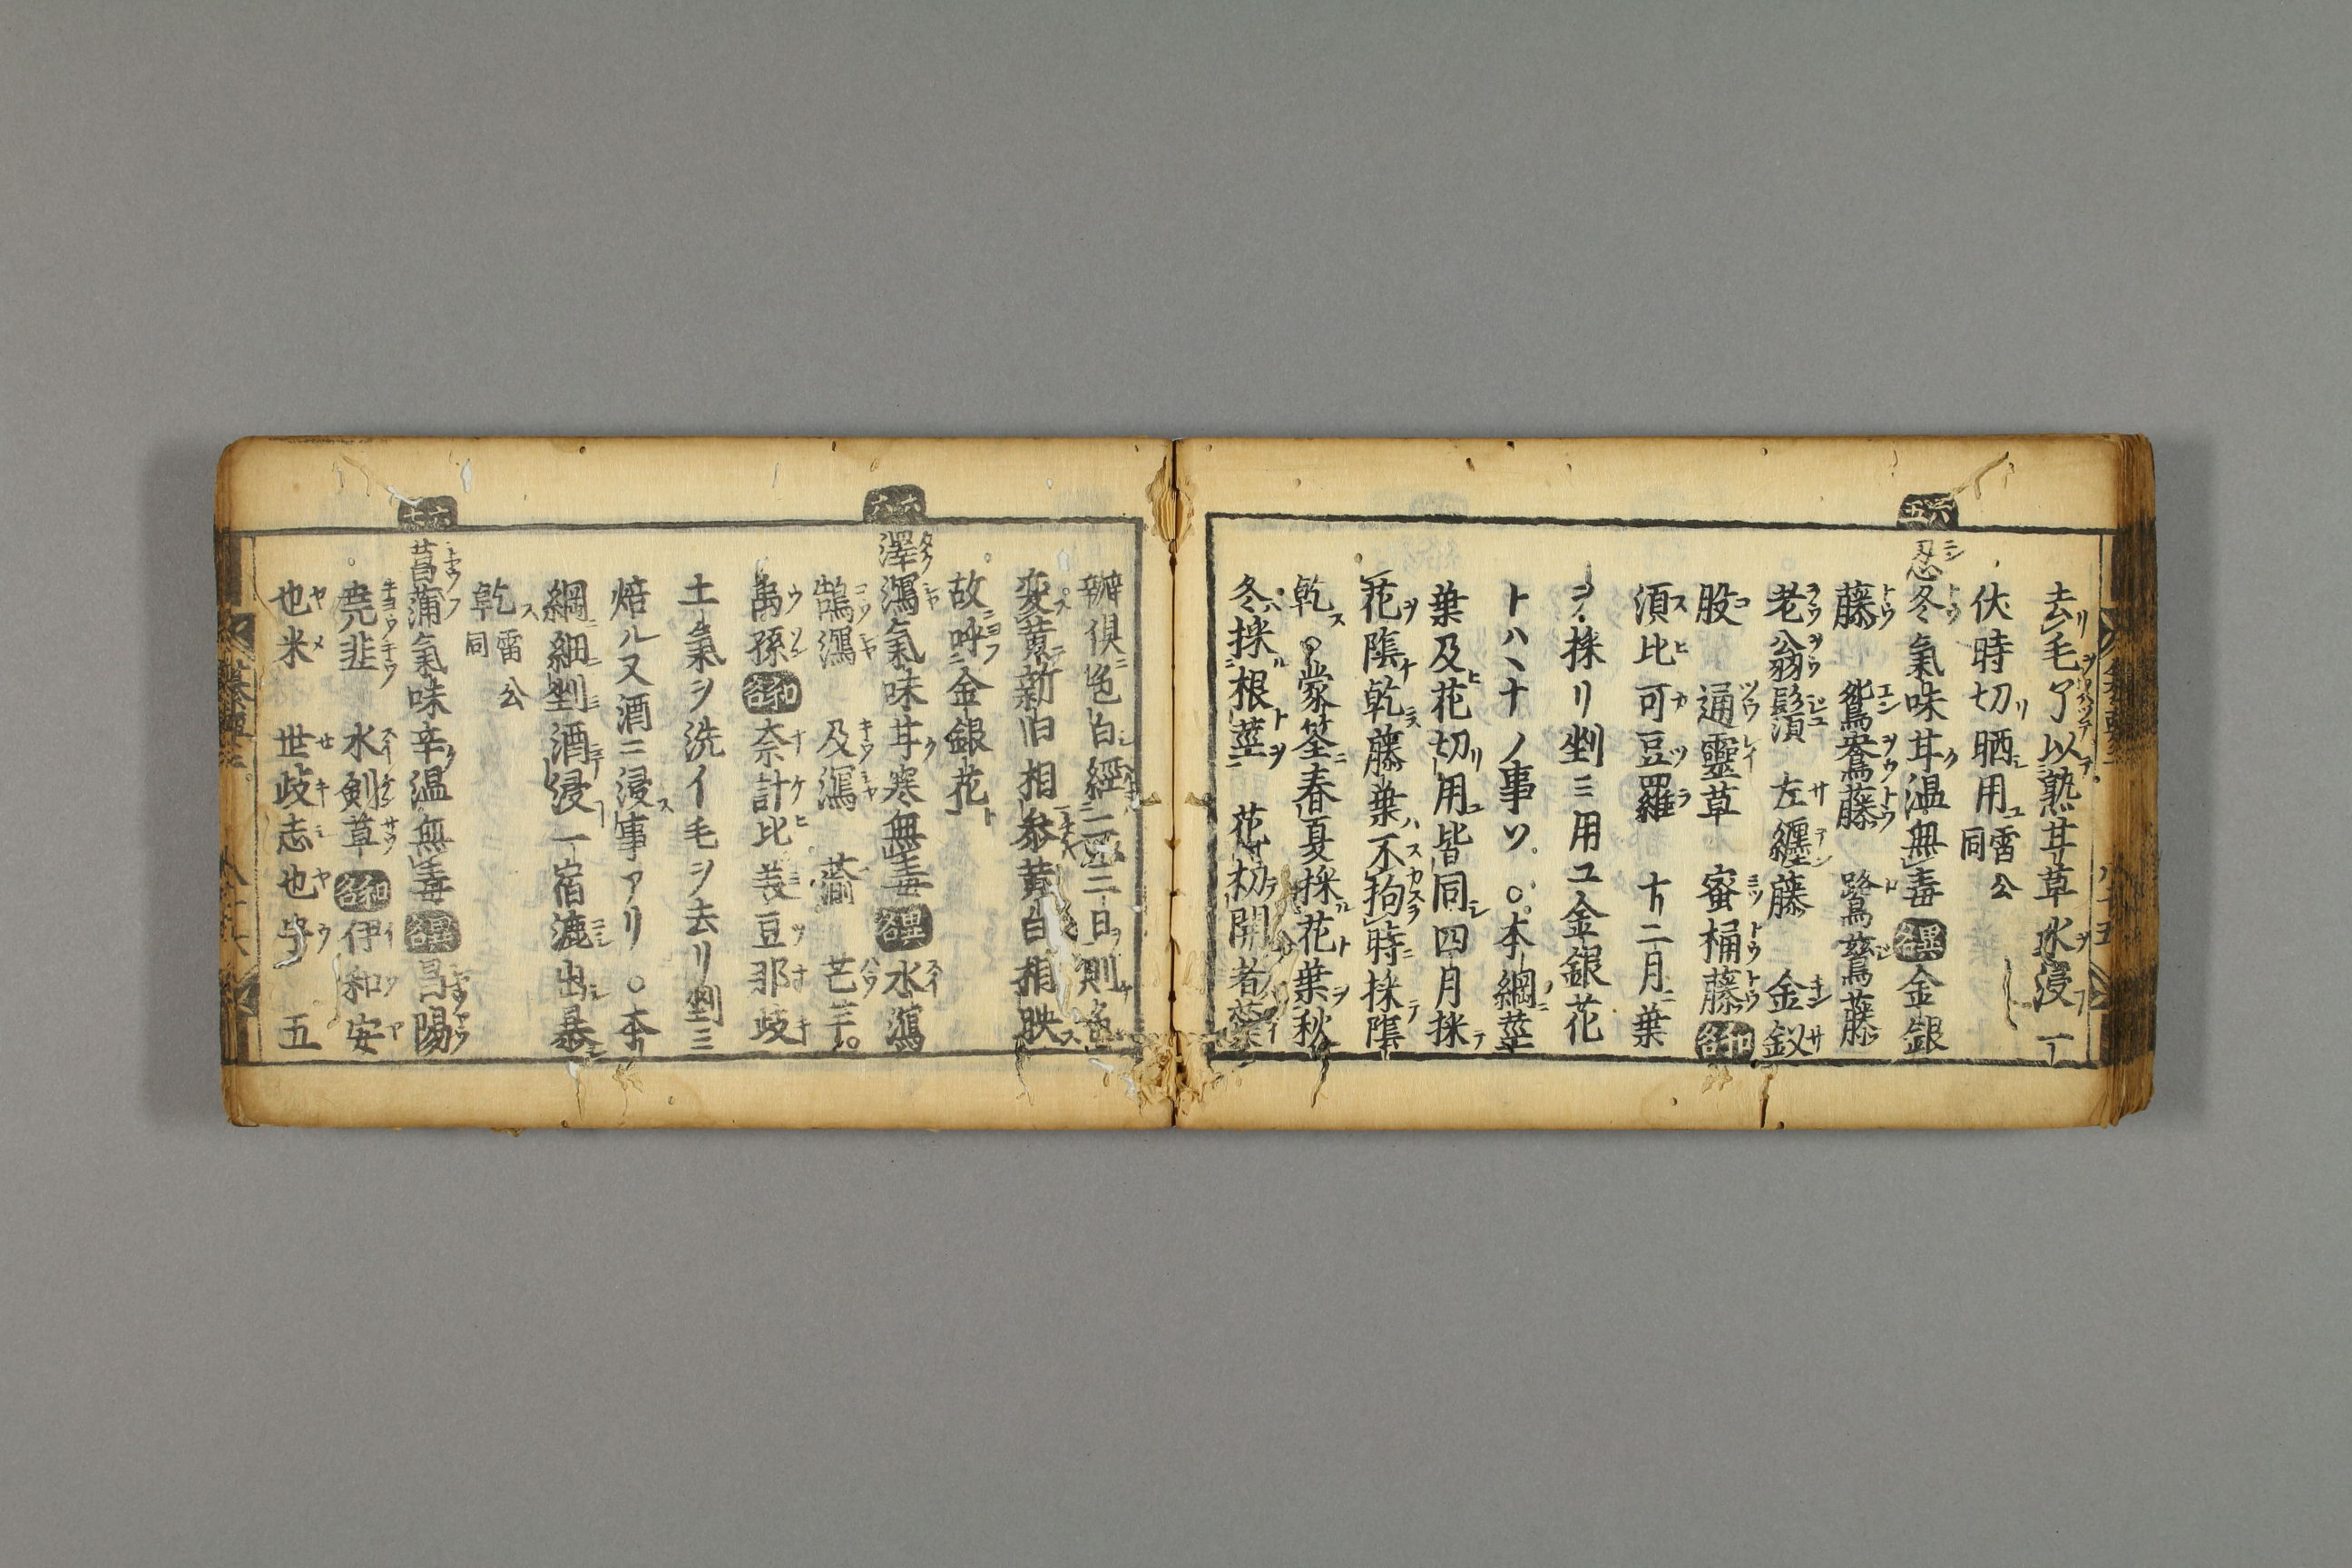 去毛了以熟甘草水浸一
伏時切晒用雷公同
六五
忍冬氣味甘温無毒 異名 金銀
藤 鴛鴦藤 鷺鷥藤
老翁鬚 左纏藤 金釵
股 通靈草 蜜桶藤 和名
須比可豆羅 十二月葉
ヲ採リ剉ミ用ユ金銀花
トハ、ナノ事ソ。○本綱莖
葉及花切用皆同四月採
花陰乾藤葉不拘時採陰
乾○蒙筌春夏採花葉秋
冬採根莖 花初開者蕋
瓣俱色白經二三日則色
変黄新旧相参黄白相映
故呼金銀花
六六
澤瀉氣味甘寒無毒 異名 水瀉
鵠瀉 及瀉 蕍 芒芋。
禹孫 和名 奈計比美豆那岐
土氣ヲ洗イ毛ヲ去リ剉ミ
焙ル又酒ニ浸事アリ○本
綱細剉酒浸一宿漉出暴
乾雷公同
六七
菖蒲氣味辛温無毒 異名 昌陽
堯韭 水剣草 和名 伊和安
也米 世岐志也宇 五